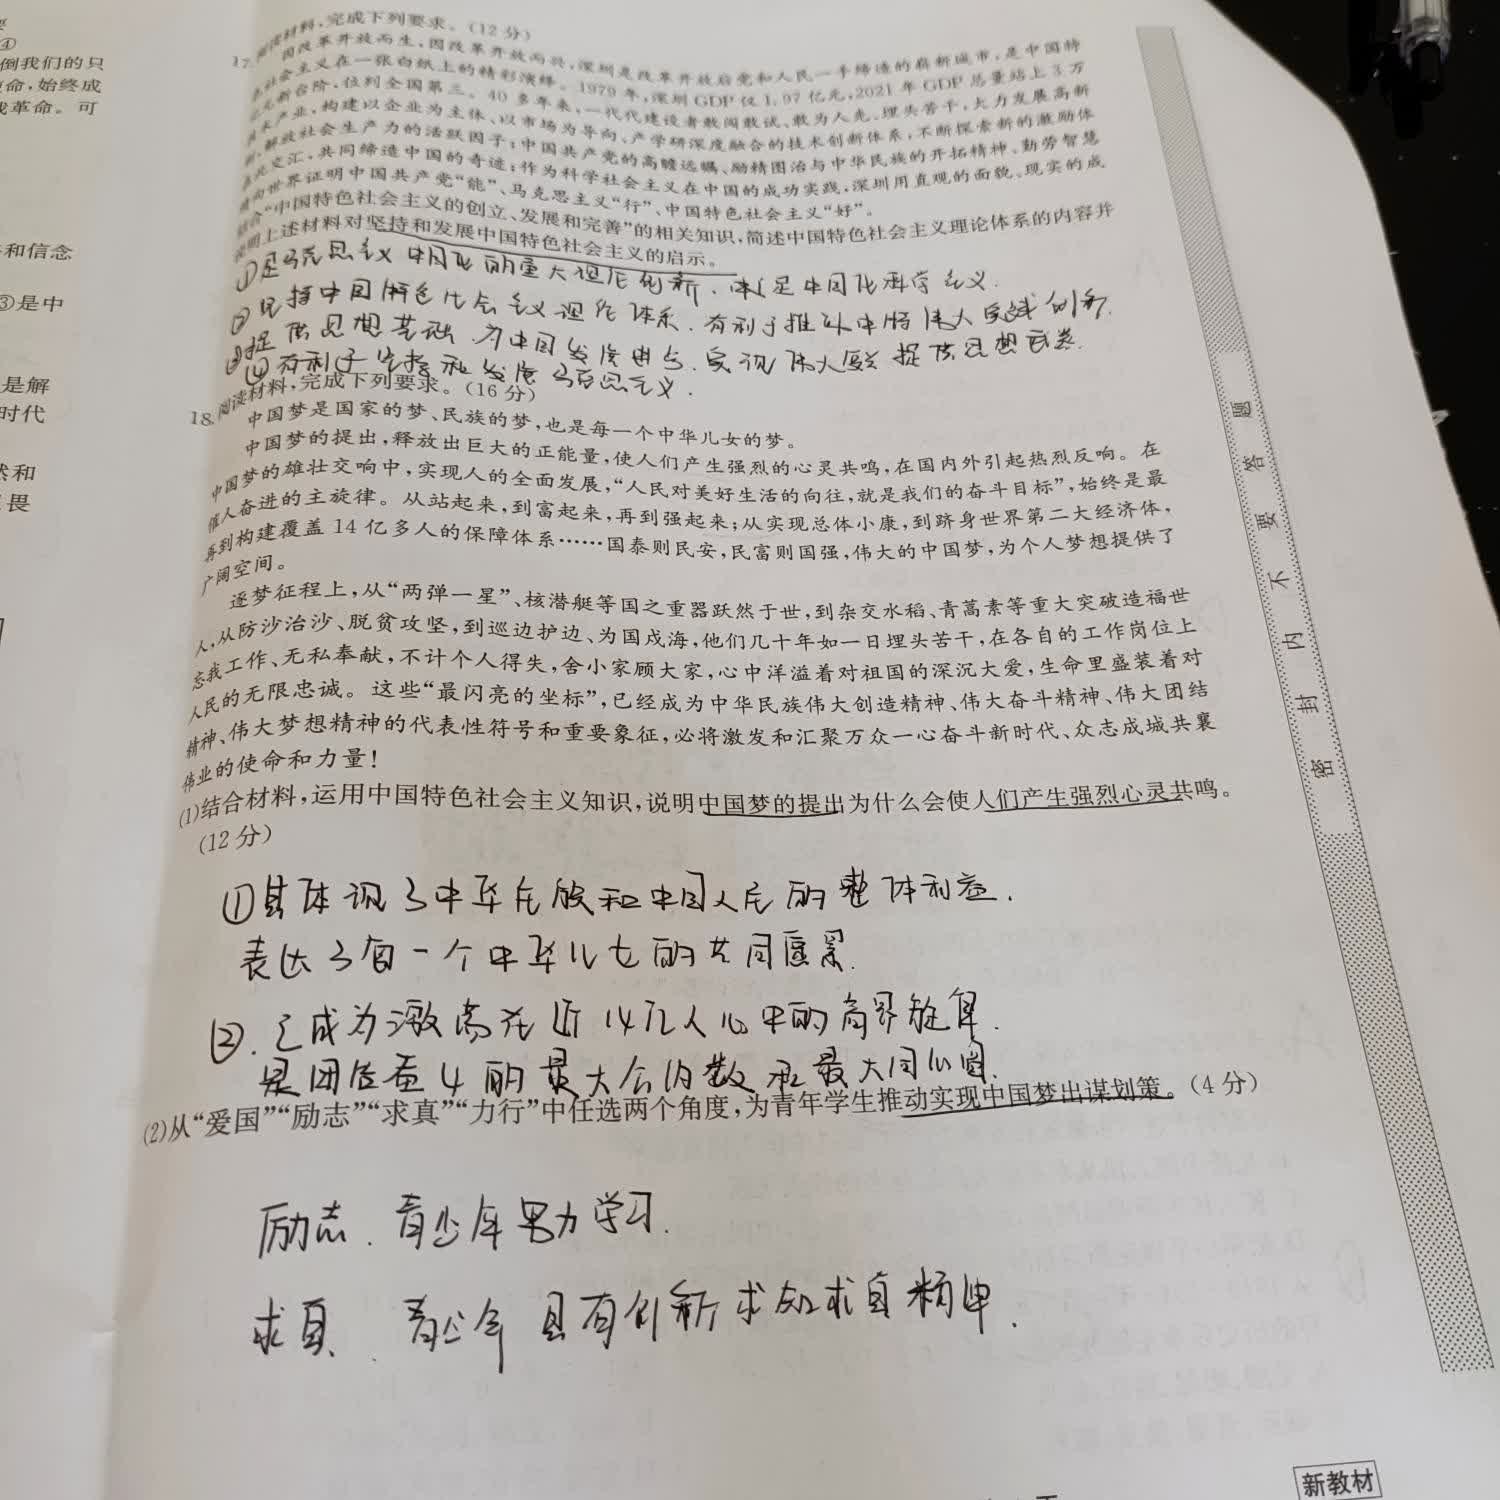 ④
倒我们的只
命,始终成
革命。可
和信念
③是中
是解
时代
然和
畏
17.阅读材料,完成下列要求。(12分)
因改革开放而生,因改革开放而兴,深圳是改革开放后党和人民一手缔造的崭新城市,是中国特
色社会主义在一张白纸上的精彩演绎。1979年,深圳GDP仅1.97亿元,2021年GDP总量站上3万
亿元新台阶,位列全国第三。40多年来,一代代建设者敢闯敢试、敢为人先、埋头苦干,大力发展高新
技术产业,构建以企业为主体、以市场为导向、产学研深度融合的技术创新体系,不断探索新的激励体
制,解放社会生产力的活跃因子;中国共产党的高瞻远瞩、励精图治与中华民族的开拓精神、勤劳智慧
在此交汇,共同缔造中国的奇迹;作为科学社会主义在中国的成功实践,深圳用直观的面貌、现实的成
绩向世界证明中国共产党“能”、马克思主义“行”、中国特色社会主义“好”。
结合“中国特色社会主义的创立、发展和完善”的相关知识,简述中国特色社会主义理论体系的内容并
说明上述材料对坚持和发展中国特色社会主义的启示。
①是马克思主义中国化的重大理论创新.体系是中国化科学主义.
②坚持中国特色社会主义理论体系.有利于推动中特伟大实践创新.
③提供思想基础.为中国发展进步.实现伟大复兴提供思想武器.
④有利于坚持和发展马克思主义.
18.阅读材料,完成下列要求。(16分)
中国梦是国家的梦、民族的梦,也是每一个中华儿女的梦。
中国梦的提出,释放出巨大的正能量,使人们产生强烈的心灵共鸣,在国内外引起热烈反响。在
中国梦的雄壮交响中,实现人的全面发展,“人民对美好生活的向往,就是我们的奋斗目标”,始终是最
催人奋进的主旋律。从站起来,到富起来,再到强起来;从实现总体小康,到跻身世界第二大经济体,
再到构建覆盖14亿多人的保障体系……国泰则民安,民富则国强,伟大的中国梦,为个人梦想提供了
广阔空间。
逐梦征程上,从“两弹一星”、核潜艇等国之重器跃然于世,到杂交水稻、青蒿素等重大突破造福世
人,从防沙治沙、脱贫攻坚,到巡边护边、为国戍海,他们几十年如一日埋头苦干,在各自的工作岗位上
忘我工作、无私奉献,不计个人得失,舍小家顾大家,心中洋溢着对祖国的深沉大爱,生命里盛装着对
人民的无限忠诚。这些“最闪亮的坐标”,已经成为中华民族伟大创造精神、伟大奋斗精神、伟大团结
精神、伟大梦想精神的代表性符号和重要象征,必将激发和汇聚万众一心奋斗新时代、众志成城共襄
伟业的使命和力量!
(1)结合材料,运用中国特色社会主义知识,说明中国梦的提出为什么会使人们产生强烈心灵共鸣。
(12分)
①其体现了中华民族和中国人民的整体利益.
表达了每一个中华儿女的共同愿景.
②.已成为激荡在近14亿人心中的高昂旋律.
是团结奋斗的最大公约数和最大同心圆.
(2)从“爱国”“励志”“求真”“力行”中任选两个角度,为青年学生推动实现中国梦出谋划策。(4分)
励志.青少年努力学习.
求真.青少年具有创新求知求真精神.
密封内不要答题
新教材